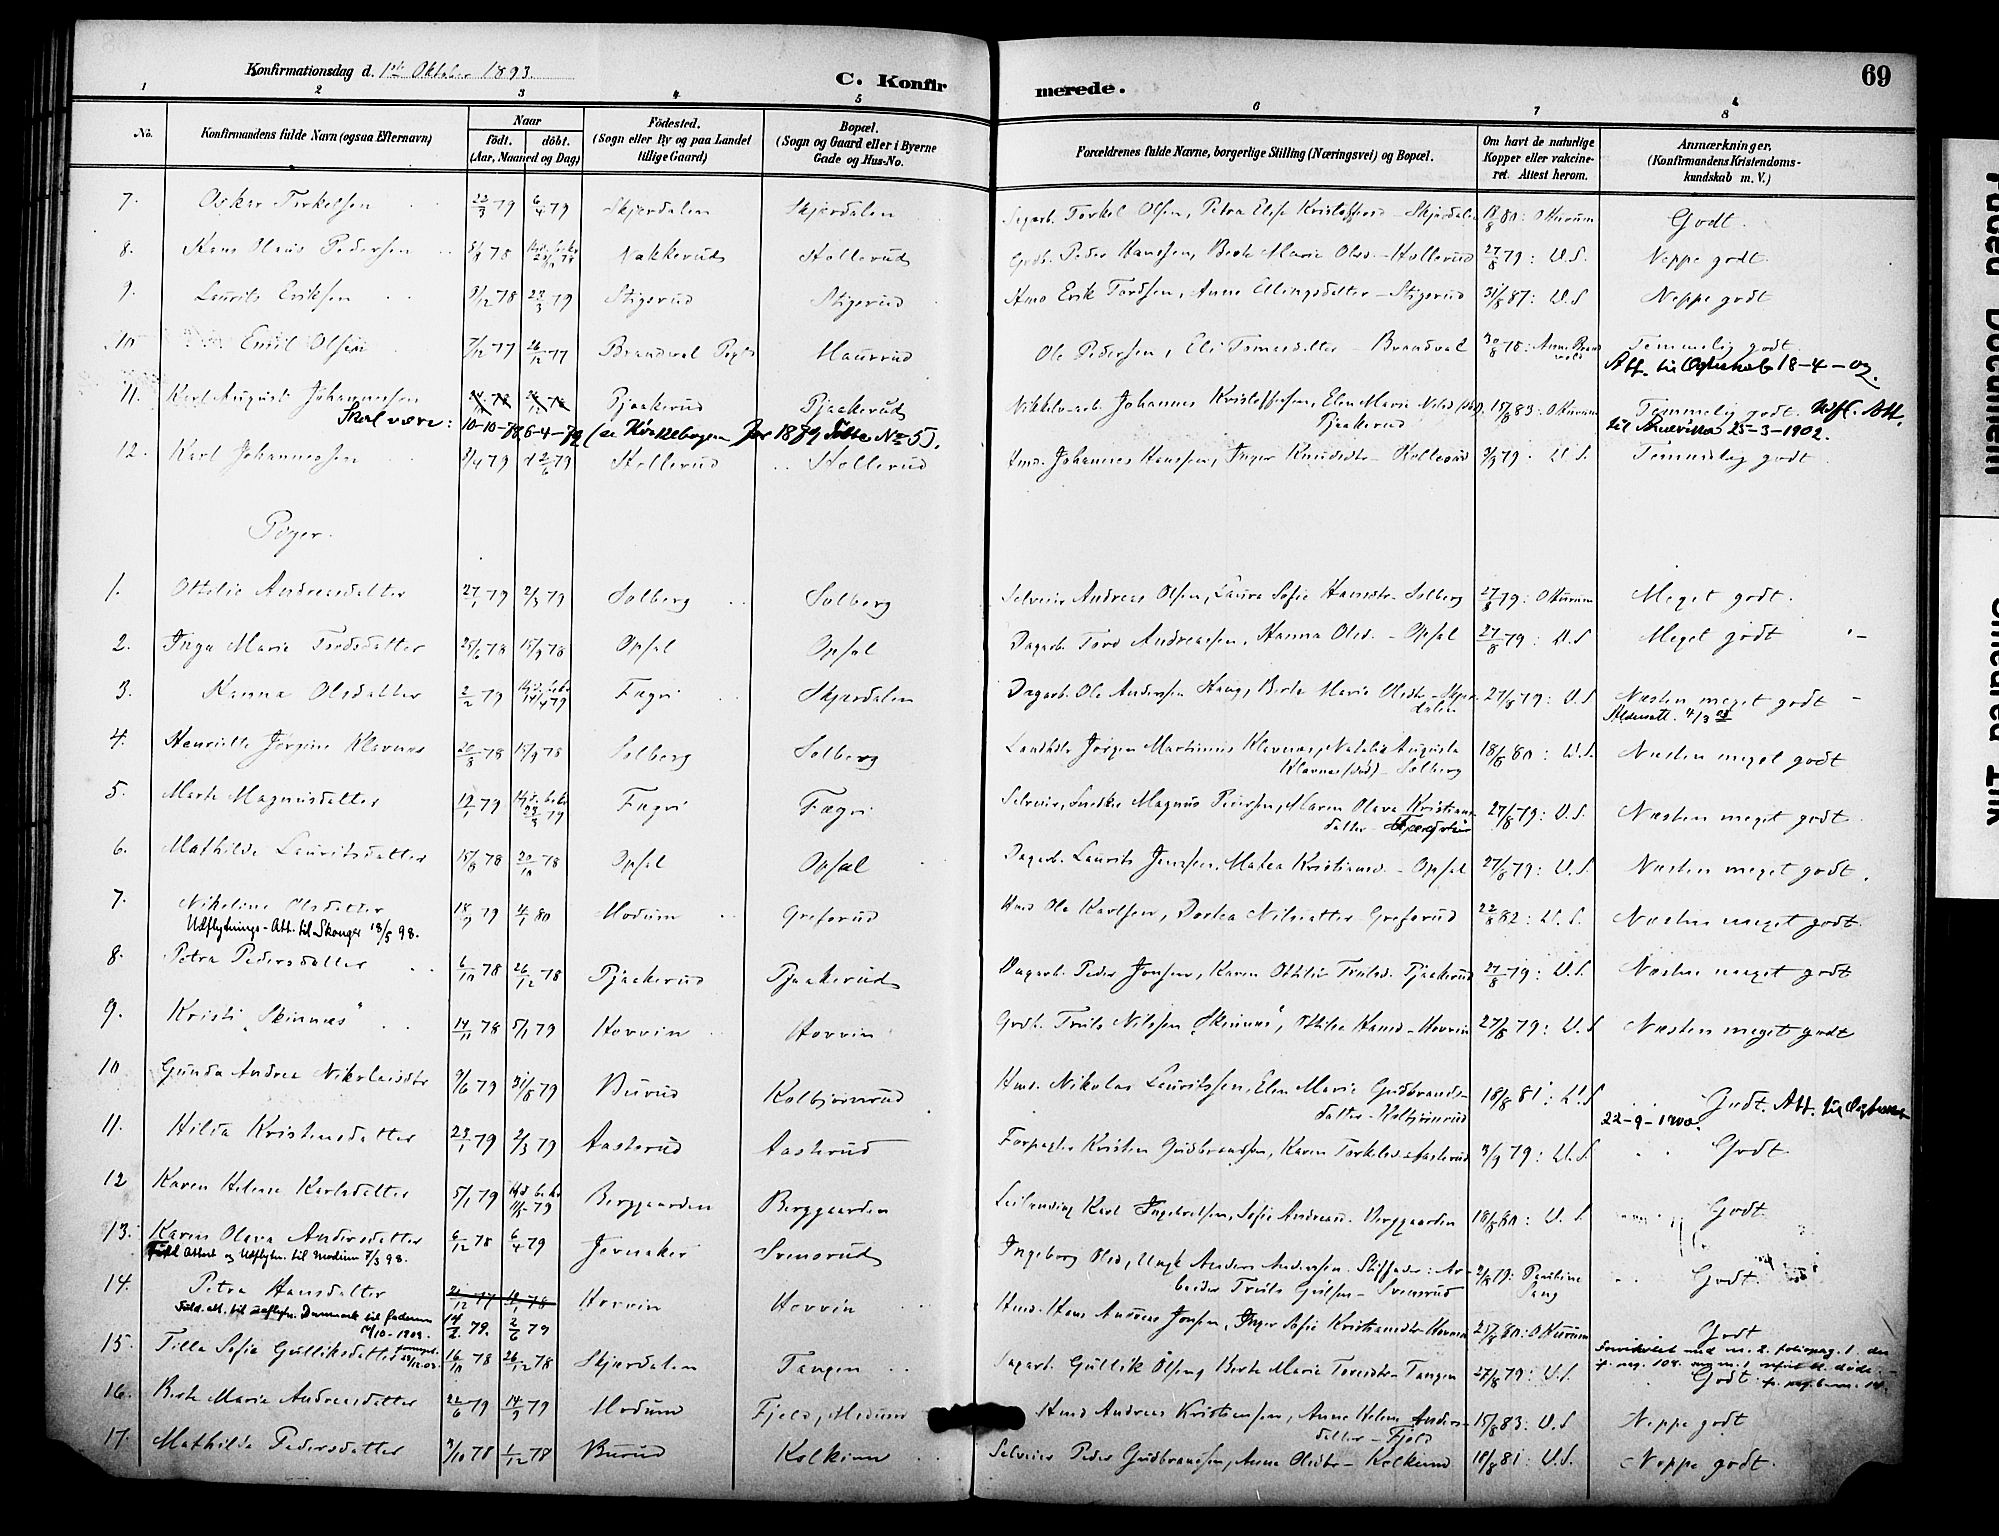 Konfirmationsdag d. 1ste Oktober 1893.
C. Konfirmerede.
69
1 2 3 4 5 6 7 8
No. Konfirmandens fulde Navn (ogsaa Efternavn) Naar födt. döbt. (Aar, Maaned og Dag) Födested. (Sogn eller By og paa Landet tillige Gaard) Bopæl. (Sogn og Gaard eller i Byerne Gade og Hus-No. Forældrenes fulde Navne, borgerlige Stilling (Næringsvei) og Bopæl. Om havt de naturlige Kopper eller vakcineret. Attest herom. Anmærkninger. (Konfirmandens Kristendomskundskab m. V.)
7. Oskar Torkelsen 23/3 79 6/4 79 Skjærdalen Skjærdalen Torkel Olsen, Petra Elise Kristoffersd - Skjærdalen 18/8 80: Godt.
8. Hans Olaus Pedersen Nakkerud Hollerud Peder Hanssen, Berte Marie Olsd. - Hollerud 27/8 79: U.S. Neppe godt
9. Laurits Eriksen 3/12 78 23/3 79 Stigerud Stigerud Erik Tordsen, Anne Elingsdatter - Stigerud 31/8 87: U.S Neppe godt
10 Emil Olsen 7/12 77 26/12 77 Brandval Maurud Ole Pedersen, Eli Tomesdatter - Brandval 30/8 78: Temmelig godt.
Att. til 18-4-02.
11. Karl August Johannessen Pjaakerud Pjaakerud Johannes Kristoffersen, Elen Marie Pjaakerud 15/8 83: Temmelig godt. Udfl. Att.
Skal være: 10-10-78 6-4-79 (se Kirkebogen for 1879 No 5). til 25-3-1902.
12. Karl Johannessen 2/4 79 2/6 79 Hollerud Hollerud Hmd. Johannes Hanssen, Inger Knudsdtr - Hollerud 3/9 79: U.S. Temmelig godt
Piger.
1. Ottilie Andreasdatter 27/1 79 2/3 79 Solberg Solberg Selveier Andreas Olsen, Laura Sofie Hansdtr - Solberg 27/8 79: Meget godt.
2. Inga Marie Tordsdatter 25/6 78 15/9 78 Opsal Opsal Dagarb. Tord Andreassen, Hanna Olsd. - Opsal 27/8 79: U.S Meget godt
3. Hanna Olsdatter 2/2 79 14/4 79 Fægri Skjærdalen Dagarb. Ole Anderssen Haug, Berte Marie Olsdtr - Skjærdalen 27/8 79: U.S Næsten meget godt
4/3
4. Henriette Jørgine Klevnæs 20/8 78 15/9 78 Solberg Solberg Landhdl. Jørgen Martinius Klevnæs, Natalia Augusta Klevnæs (død) - Solberg 18/8 80: U.S. Næsten meget godt
5. Marte Magnusdatter 19/1 79 23/3 79 Fægri Fægri Selveier, Snedker Magnus Peterssen, Maren Olava Kristiansdatter 27/8 79: U.S. Næsten meget godt
6. Mathilde Lauritsdatter 15/8 78 20/10 78 Opsal Opsal Dagarb. Laurits Jenssen, Matea Kristiansd. - Opsal 27/8 79: U.S. Næsten meget godt.
7. Nikoline Olsdatter 18/9 79 4/1 80 Modum Greferud Hmd Ole Karlsen, Dortea Nilsdatter - Greferud 22/8 82: U.S. Næsten meget godt
Udflytnings-Att. til Skoger 18/5 98.
8. Petra Pedersdatter 6/10 78 26/12 78 Pjaakerud Pjaakerud Dagarb. Peder Jonsen, Karen Ottilie Trulsd. Pjaakerud 27/8 79: U.S. Næsten meget godt
9. Kristi "Skinnes" 14/11 78 5/1 79 Hovvin Hovvin Gbdb. Truls Nilssen "Skinnes", Ottilie Hansd - Hovvin 27/8 79: U.S Næsten meget godt
10 Gunda Andrea Nikolaisdtr 9/6 79 31/8 79 Burud Kolbjørnrud Hmd. Nikolai Lauritssen, Elen Marie Gudbrandsdatter - Kolbjørnrud 18/8 81: U.S Godt. Att. til
22-9-1900.
11. Hilda Kristensdatter 23/1 79 2/3 79 Aasterud Aasterud Forpagter Kristen Gudbrandsen, Karen Torkelsd - Aasterud 3/9 79: U.S. Godt
12 Karen Helene Karlsdatter 5/1 79 Berggaarden Berggaarden Leilending Karl Ingebretsen, Sofie Andreasd. Berggaarden 18/8 80: U.S. Godt
13. Karen Olava Andersdatter 6/12 78 6/4 79 Jevnaker Svensrud Ingeborg Olsd, Ungk Anders Andersen. Stiffader: Arbeider Truls Gulsen - Svensrud Godt.
Attest og Udflytn. til Modum 7/3 98.
14. Petra Hansdatter Hovvin Hovvin Hmd. Hans Andreas Jonsen, Inger Sofie Kristiansdtr - Hovvin 25/8 80: Godt
14/2 79. 2/6 79
15. Tilla Sofie Gulliksdatter 16/10 78 26/12 78 Skjærdalen Tangen Sagarb. Gullik Olsen, Berte Marie Toresdtr - Tangen 27/8 79: U.S. Godt
16. Berte Marie Andreasdatter 22/6 79 14/9 79 Modum Fjeld, Modum Hmd Andreas Kristiansen, Anne Helene Andersdatter - Fjeld 15/8 83: U.S Neppe godt
17. Mathilde Pedersdatter 3/10 78 1/12 78 Burud Kolkinn Selveier Peder Gudbrandsen, Anne Olsdtr - Kolkinn 18/8 81: U.S. Neppe godt.